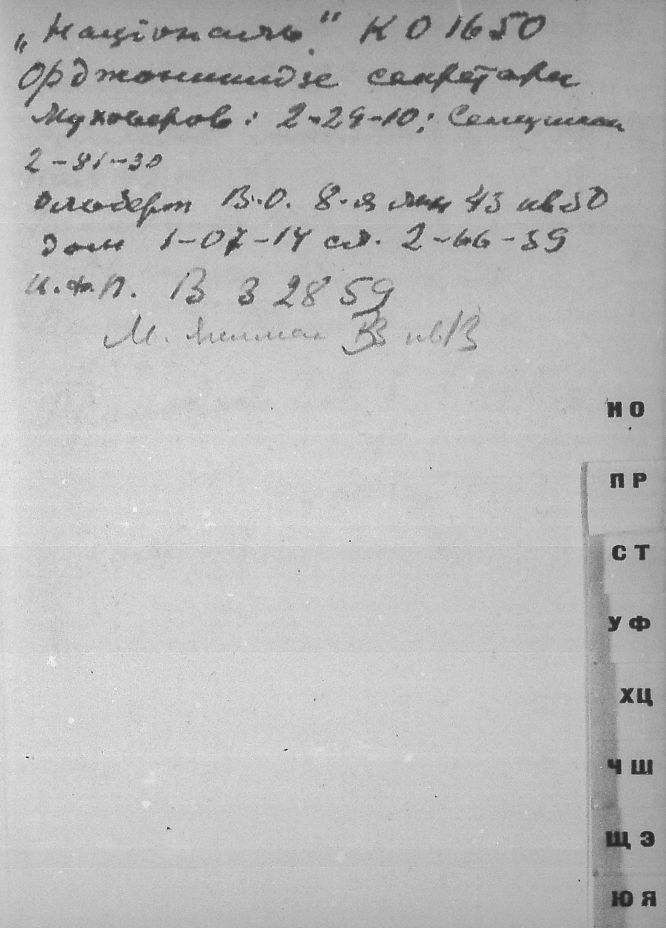 „Націоналъ" К 0 1650
Орджоникидзе секретари
Муховеров: 2-29-10; Семушкин
2-81-30
Ольберт В.О. 8-я лин 43 кв 50
дом 1-07-14 сл. 2-66-59
И.Ф.П. В 3 28 59
М. кв 13
НО
ПР
СТ
УФ
ХЦ
ЧШ
ЩЭ
ЮЯ